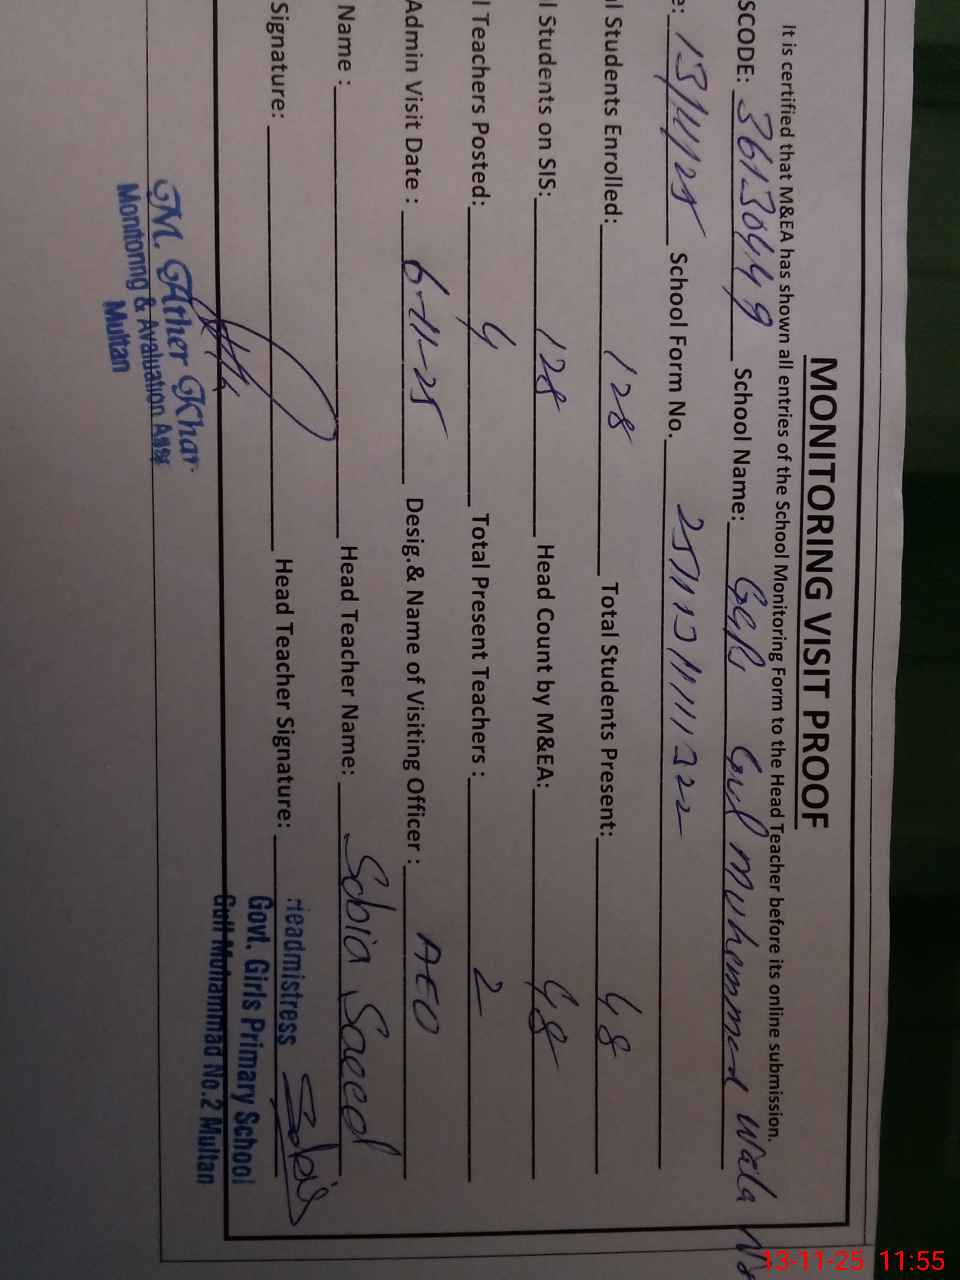 MONITORING VISIT PROOF
It is certified that M&EA has shown all entries of the School Monitoring Form to the Head Teacher before its online submission.
SCODE: 36130449 School Name: GGPS Gul Muhammad wala No
e: 13/11/25 School Form No. 251113111111322
l Students Enrolled: 128 Total Students Present: 48
l Students on SIS: 128 Head Count by M&EA: 48
l Teachers Posted: 4 Total Present Teachers : 2
Admin Visit Date : 6-11-25 Desig.& Name of Visiting Officer : AEO
Name : Head Teacher Name: Sobia Saeed
Signature: Head Teacher Signature: Sobia
Headmistress
Govt. Girls Primary School
Gull Muhammad No.2 Multan
M. Ather Khan
Monitoring & Avaluation Asst
Multan
13-11-25 11:55